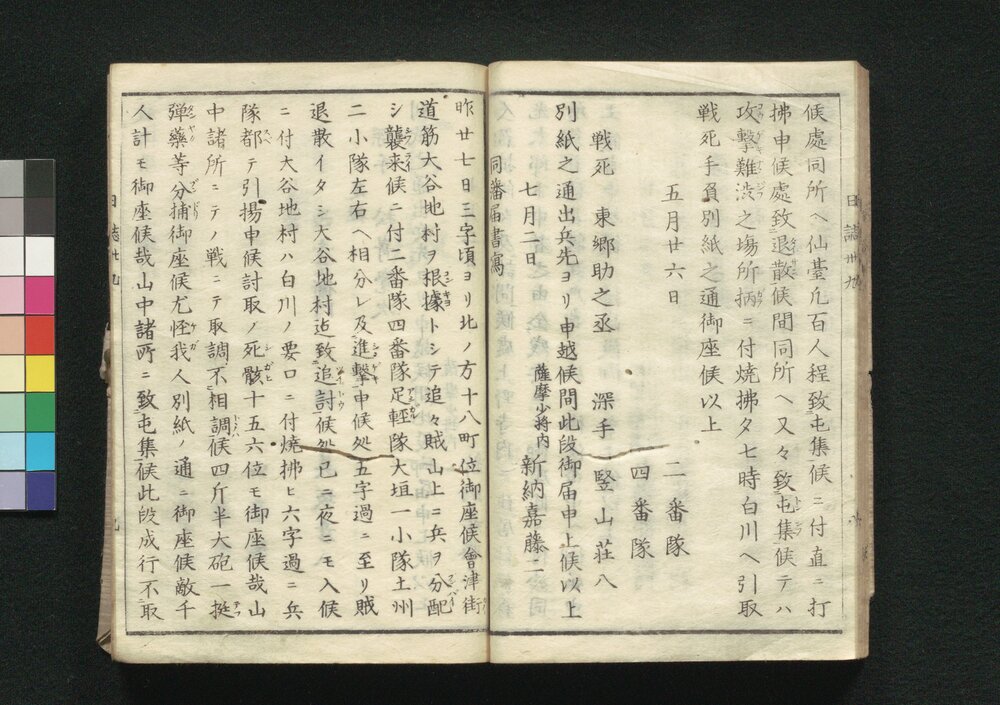 候處同所ヘ仙臺凡百人程致屯集候ニ付直ニ打
拂申候處致退散候間同所ヘ又々致屯集候テハ
攻擊難渋之場所柄ニ付焼拂夕七時白川ヘ引取
戦死手負別紙之通御座候以上
五月廿六日
二番隊
四番隊
戦死 東郷助之丞 深手 竪山荘八
別紙之通出兵先ヨリ申越候間此段御届申上候以上
薩摩少将内
七月二日 新納嘉藤二
同藩届書寫
昨廿七日三字頃ヨリ北ノ方十八町位御座候會津街
道筋大谷地村ヲ根據トシテ追々賊山上ニ兵ヲ分配
シ襲来候ニ付二番隊四番隊足輕隊大垣一小隊土州
二小隊左右ヘ相分レ及進擊申候処五字過ニ至リ賊
退散イタシ大谷地村迠致追討候処已ニ夜ニモ入候
ニ付大谷地村ハ白川ノ要口ニ付焼拂ヒ六字過ニ兵
隊都テ引揚申候討取ノ死骸十五六位モ御座候哉山
中諸所ニテノ戦ニテ取調不相調候四斤半大砲一挺
弾藥等分捕御座候尤怪我人別紙ノ通ニ御座候敵千
人計モ御座候哉山中諸所ニ致屯集候此段成行不取
日誌廿九